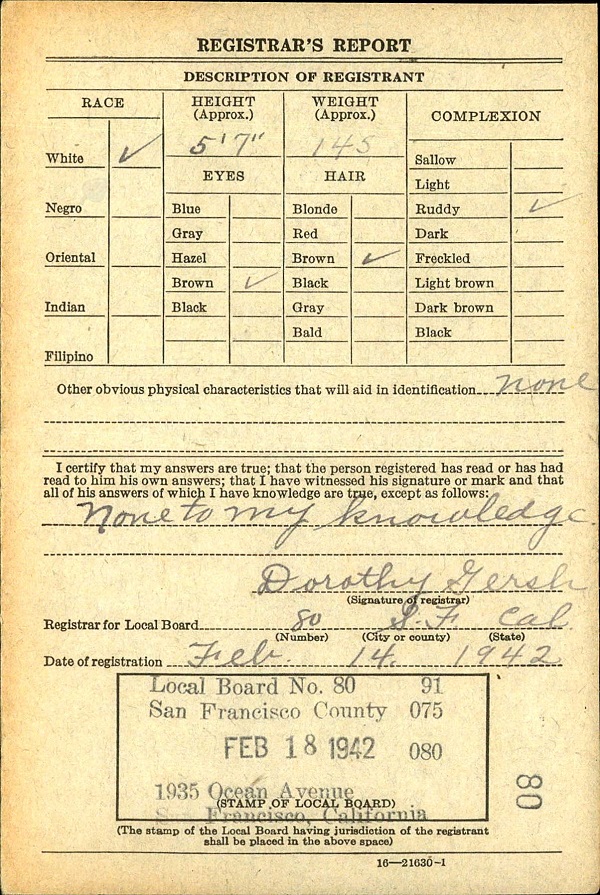 REGISTRAR'S REPORT
DESCRIPTION OF REGISTRANT
RACE
HEIGHT
(Approx.)
WEIGHT
(Approx.)
COMPLEXION
5'7"
145
White ✓
Negro
Oriental
Indian
Filipino
EYES
Blue
Gray
Hazel
Brown ✓
Black
HAIR
Blonde
Red
Brown ✓
Black
Gray
Bald
Sallow
Light
Ruddy ✓
Dark
Freckled
Light brown
Dark brown
Black
Other obvious physical characteristics that will aid in identification none
I certify that my answers are true; that the person registered has read or has had
read to him his own answers; that I have witnessed his signature or mark and that
all of his answers of which I have knowledge are true, except as follows:
None to my knowledge
Dorothy Gersh
(Signature of registrar)
Registrar for Local Board 80 S.F. Cal.
(Number) (City or county) (State)
Date of registration Feb. 14. 1942
Local Board No. 80 91
San Francisco County 075
FEB 18 1942 080
1935 Ocean Avenue
(STAMP OF LOCAL BOARD)
San Francisco, California
80
(The stamp of the Local Board having jurisdiction of the registrant
shall be placed in the above space)
16—21630-1